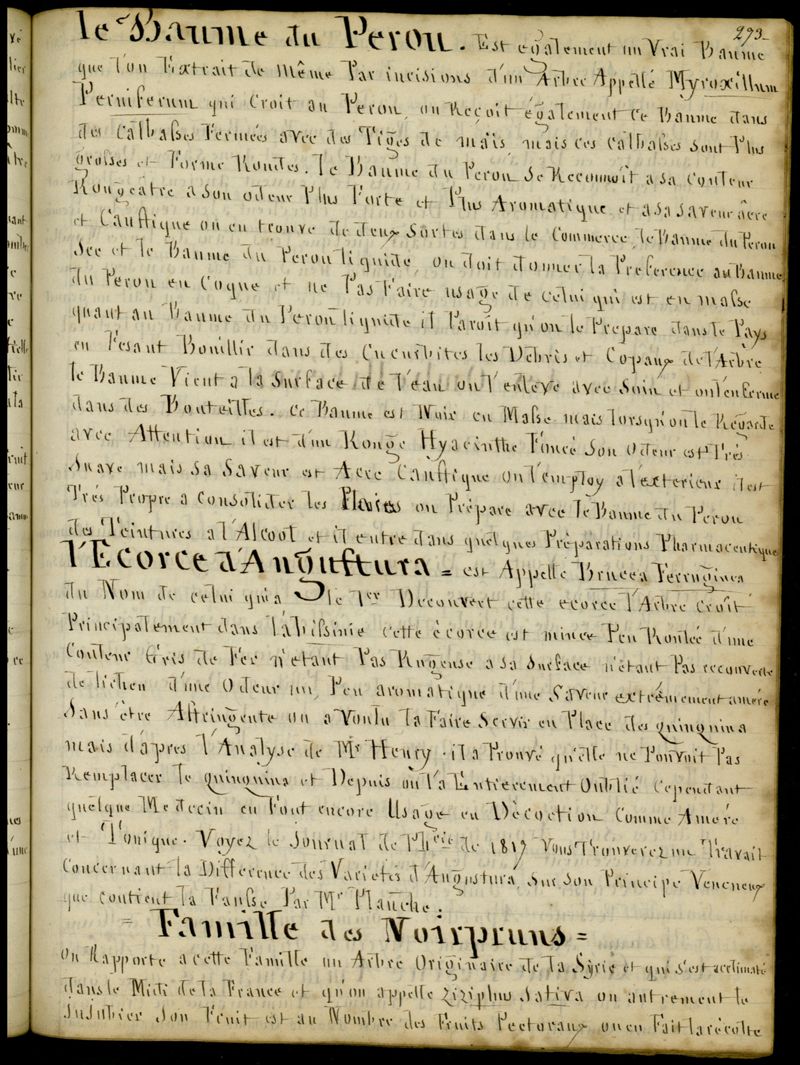 293
le Baume du Perou. Est également un Vrai Baume
que l'on Extrait de même Par incisions d'un Arbre Appellé Myroxillum
Peruiferum qui Croit au Perou, on Reçoit également Ce Baume dans
des Calbasses Fermées avec des Tiges de mais, mais ces Calbasses sont Plus
grosses et Forme Rondes. le Baume du Perou se Reconnoit a sa Couleur
Rougeatre a son odeur Plus Forte et Plus Aromatique et a sa saveur âcre
et Caustique on en trouve de deux Sortes dans le Commerce, le Baume du Perou
Sec et le Baume du Perou liquide, on doit donner la Preference au Baume
du Perou en Coque et ne Pas Faire usage de celui qui est en masse
quant au Baume du Perou liquide il Paroit qu'on le Prepare dans le Pays
en Fesant Bouillir dans des Cucurbites les Debris et Copaux de l'Arbre
le Baume Vient a la Surface de l'eau on l'enleve avec Soin et on l'enferme
dans des Bouteilles. Ce Baume est Noir en Masse mais lorsqu'on le Regarde
avec Attention il est d'un Rouge Hyacinthe Foncé Son Odeur est Très
Suave mais sa Saveur est Acre Caustique on l'employ a l'exterieur il est
Très Propre a Consolider les Plaies on Prépare avec le Baume du Perou
des Teintures a l'Alcool et il entre dans quelques Préparations Pharmaceutiques
l'Ecorce d'Angustura = est Appellé Brucea Ferruginea
du Nom de celui qui a le 1er Decouvert cette ecorce l'Arbre Croit
Principalement dans l'abissinie cette écorce est mince Peu Roulée d'une
Couleur Gris de Fer n'etant Pas Rugeuse a sa Surface n'étant Pas recouverte
de lichen d'une Odeur un Peu aromatique d'une Saveur extrêmement amére
Sans être Astringente on a Voulu la Faire Servir en Place des quinquina
mais d'après l'Analyse de Mr Henry. il a Trouvé qu'elle ne Pouvoit Pas
Remplacer le quinquina et Depuis on l'a Entierement Oublié Cependant
quelque Medecin en Font encore Usage en Décoction Comme Amére
et Tonique. Voyez le Journal de Phcie de 1817 Vous Trouverez un Travail
Concernant la Difference des Varietés d'Angustura Sur Son Principe Veneneux
que contient la Fausse Par Mr Planche.
= Famille des Noirpruns =
On Rapporte a cette Famille un Arbre Originaire de la Syrie et qui s'est acclimaté
dans le Midi de la France et qu'on appelle Ziziphus Sativa ou autrement le
Jujubier Son Fruit est au Nombre des Fruits Pectoraux on en Fait la récolte